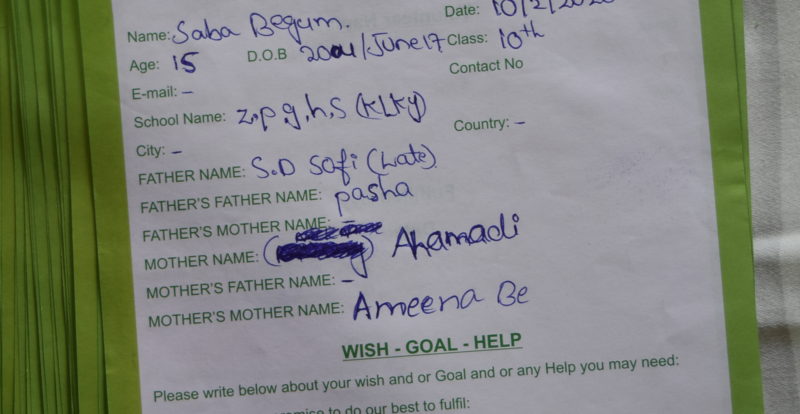 Name: Saba Begum. Date: 10/2/2020
Age: 15 D.O.B 2004/June 17 Class: 10th
E-mail: - Contact No
School Name: z.p.g.h.s (KLKY)
City: - Country: -
FATHER NAME: S.D Safi (Late)
FATHER'S FATHER NAME: pasha
FATHER'S MOTHER NAME:
MOTHER NAME: Ahamadi
MOTHER'S FATHER NAME: -
MOTHER'S MOTHER NAME: Ameena Be
WISH - GOAL - HELP
Please write below about your wish and or Goal and or any Help you may need:
to do our best to fulfil: